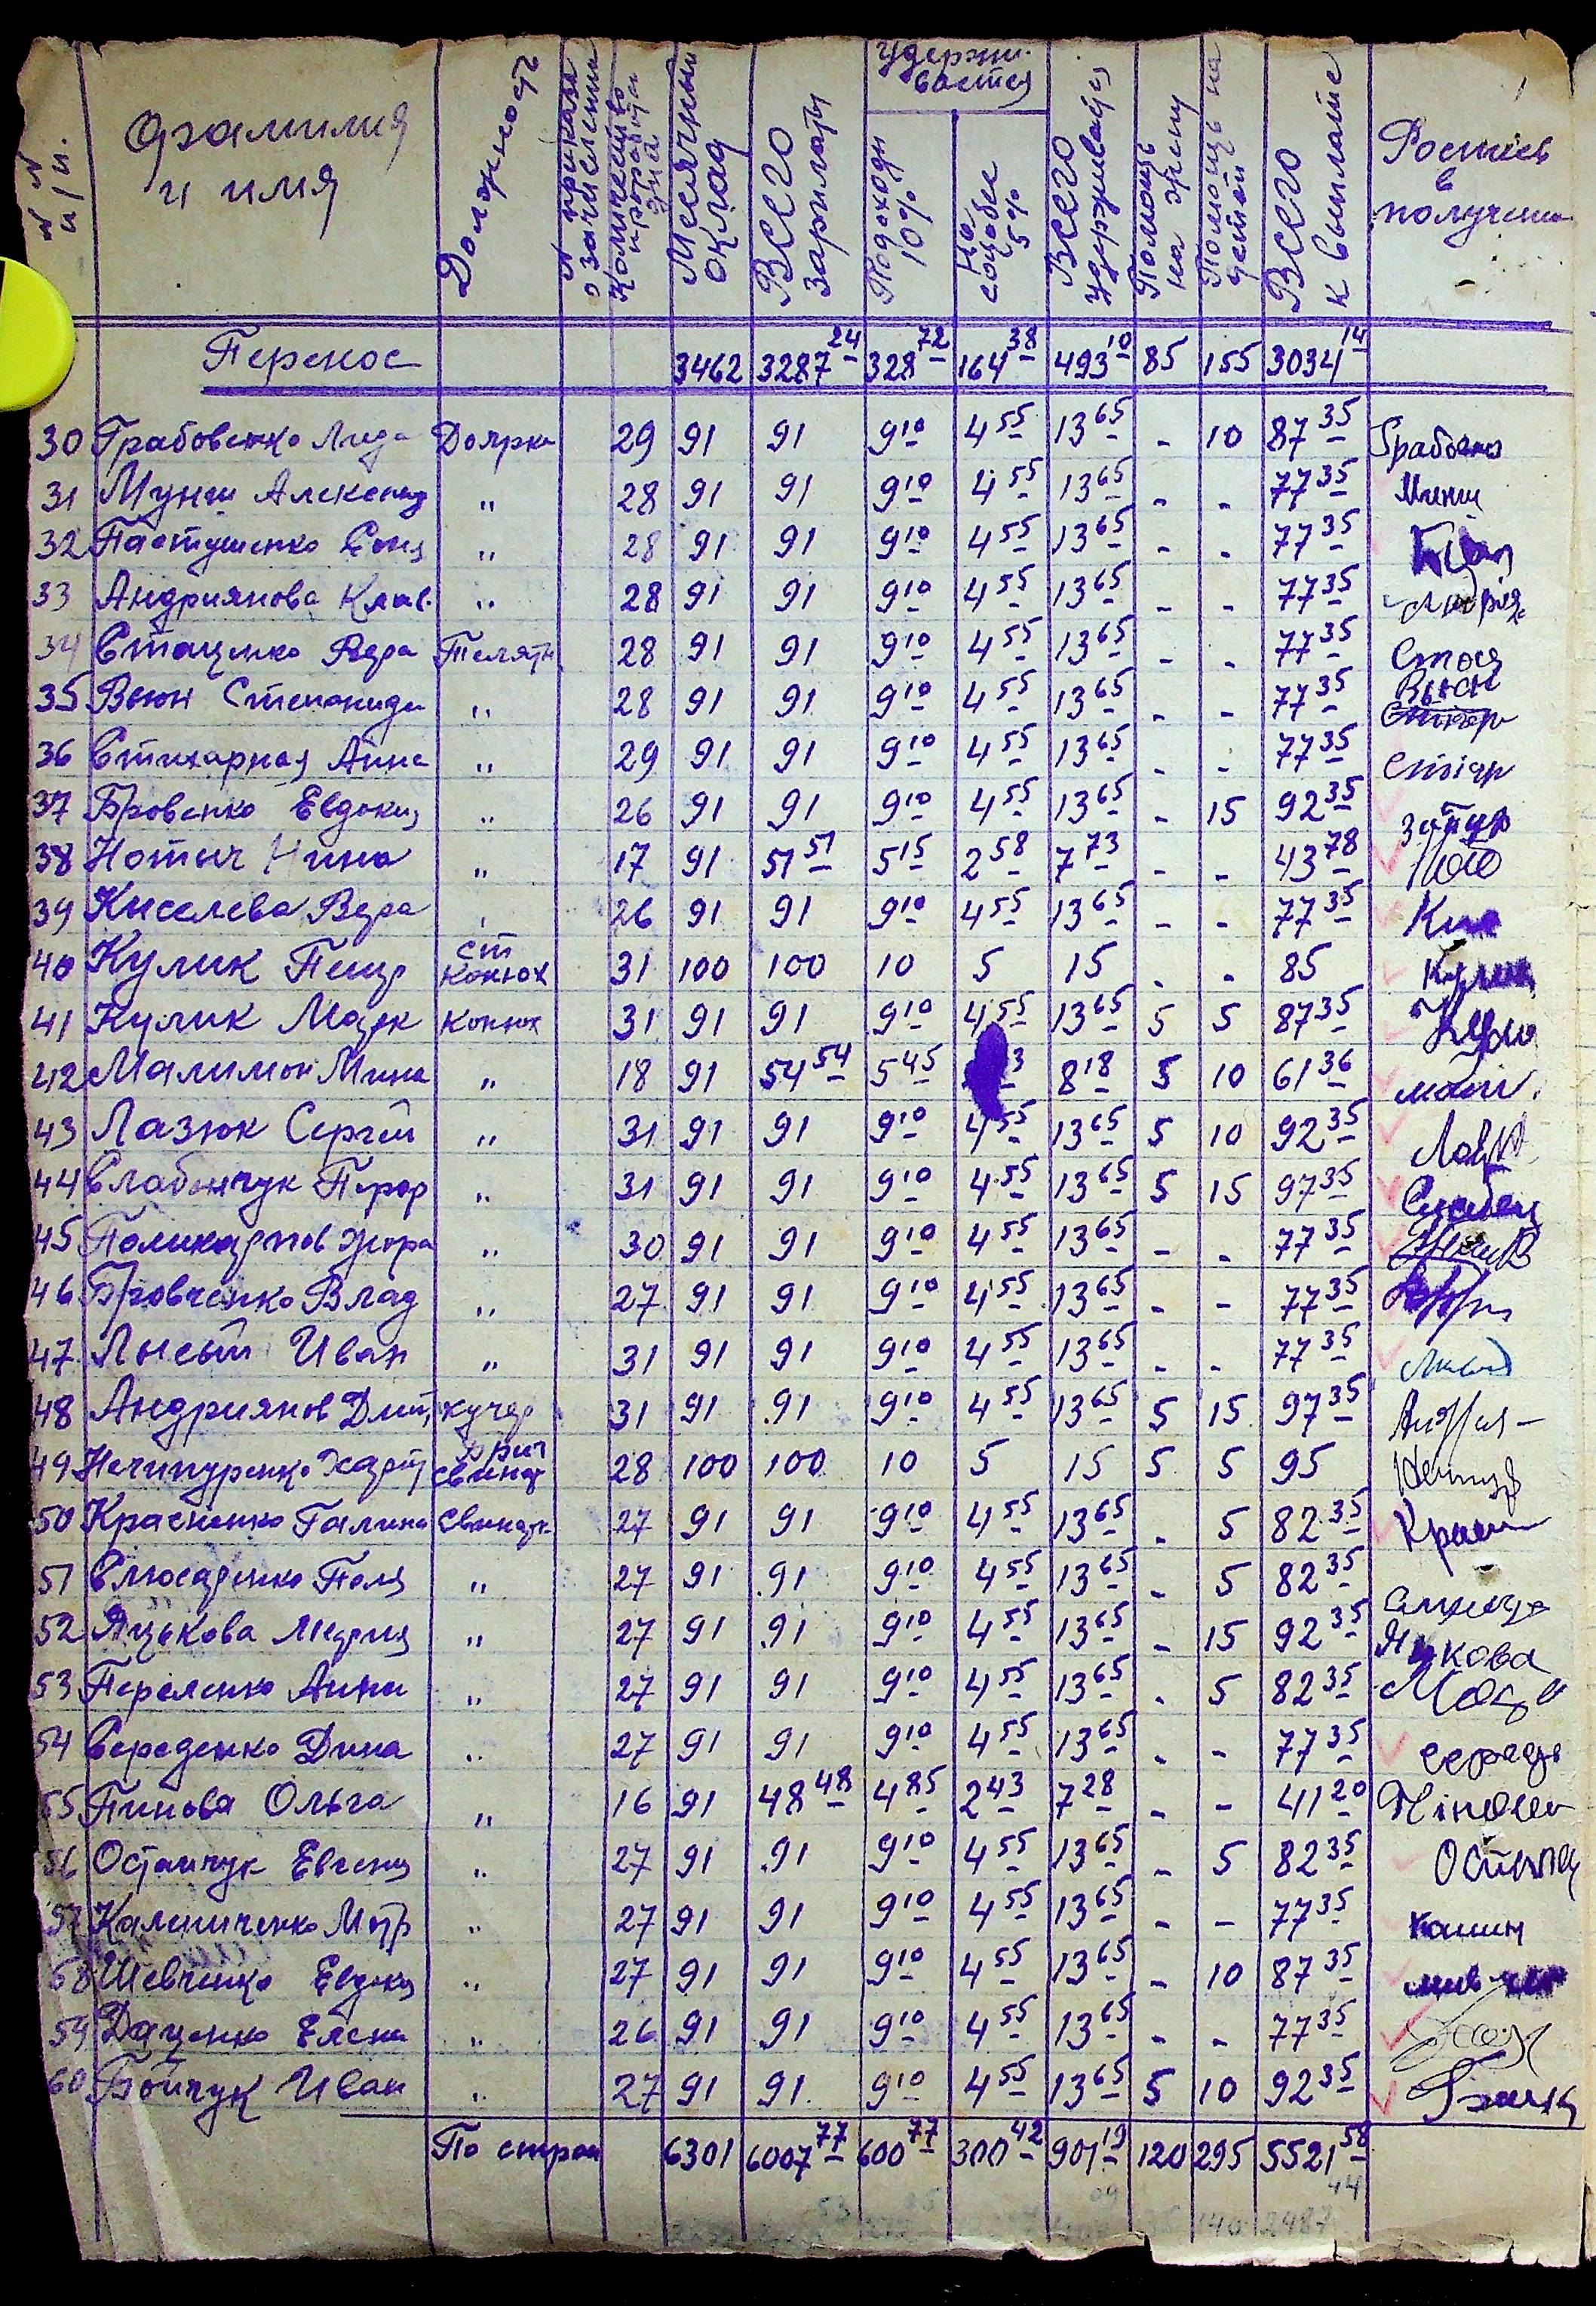 № № п/п.
Фамилия и имя
Должность
№ приказа о зачислении
Количество проработ. дня
Месячный оклад
Всего зарплаты
Удерживается
Подоходн 10%
На соцобес 5%
Всего удерживается
Помощь на жену
Помощь на детей
Всего к выплате
Роспись в получении
Перенос 3462 3287 24 328 72 164 38 493 10 85 155 3034 14
30 Грабовенко Лида Доярка 29 91 91 9 10 4 55 13 65 - 10 87 35
31 Мунш Александ " 28 91 91 9 10 4 55 13 65 - - 77 35
32 Пастушенко Соня " 28 91 91 9 10 4 55 13 65 - - 77 35
33 Андриянова Клав. " 28 91 91 9 10 4 55 13 65 - - 77 35
34 Стаценко Вера Телятн 28 91 91 9 10 4 55 13 65 - - 77 35
35 Вьюн Степанида " 28 91 91 9 10 4 55 13 65 - - 77 35 Вьюн
36 Стихарная Анна " 29 91 91 9 10 4 55 13 65 - - 77 35
37 Бровенко Евдокия " 26 91 91 9 10 4 55 13 65 - 15 92 35
38 Нотыч Нина " 17 91 51 51 5 15 2 58 7 73 - - 43 78
39 Киселева Вера " 26 91 91 9 10 4 55 13 65 - - 77 35
40 Кулик Петр ст конюх 31 100 100 10 5 15 - - 85
41 Кулик Марк конюх 31 91 91 9 10 4 55 13 65 5 5 87 35
42 Малимон Мина " 18 91 54 54 5 45 3 8 18 5 10 61 36
43 Лазюк Сергей " 31 91 91 9 10 4 55 13 65 5 10 92 35
44 Слабенчук " 31 91 91 9 10 4 55 13 65 5 15 97 35
45 Поликарпов Жора " 30 91 91 9 10 4 55 13 65 - - 77 35
46 Бровченко Влад " 27 91 91 9 10 4 55 13 65 - - 77 35
47 Лысый Иван " 31 91 91 9 10 4 55 13 65 - - 77 35
48 Андриянов Дмит, кучер 31 91 91 9 10 4 55 13 65 5 15 97 35
49 Нечипуренко Харит свинар 28 100 100 10 5 15 5 5 95
50 Красненко Галина Свинарк 27 91 91 9 10 4 55 13 65 - 5 82 35
51 Слюсаренко Поля " 27 91 91 9 10 4 55 13 65 - 5 82 35
52 Яцькова Мария " 27 91 91 9 10 4 55 13 65 - 15 92 35 Яцкова
53 Перепенко Анна " 27 91 91 9 10 4 55 13 65 - 5 82 35
54 Середенко Дина " 27 91 91 9 10 4 55 13 65 - - 77 35
55 Пинова Ольга " 16 91 48 48 4 85 2 43 7 28 - - 41 20
56 Остапчук Евгения " 27 91 91 9 10 4 55 13 65 - 5 82 35
57 Калиниченко Мотр " 27 91 91 9 10 4 55 13 65 - - 77 35
58 Шевченко Евдокия " 27 91 91 9 10 4 55 13 65 - 10 87 35
59 Даценко Елена " 26 91 91 9 10 4 55 13 65 - - 77 35
60 Бойчук Иван " 27 91 91 9 10 4 55 13 65 5 10 92 35
По стран 6301 6007 77 600 77 300 42 901 19 120 295 5521 58
44
140 2487